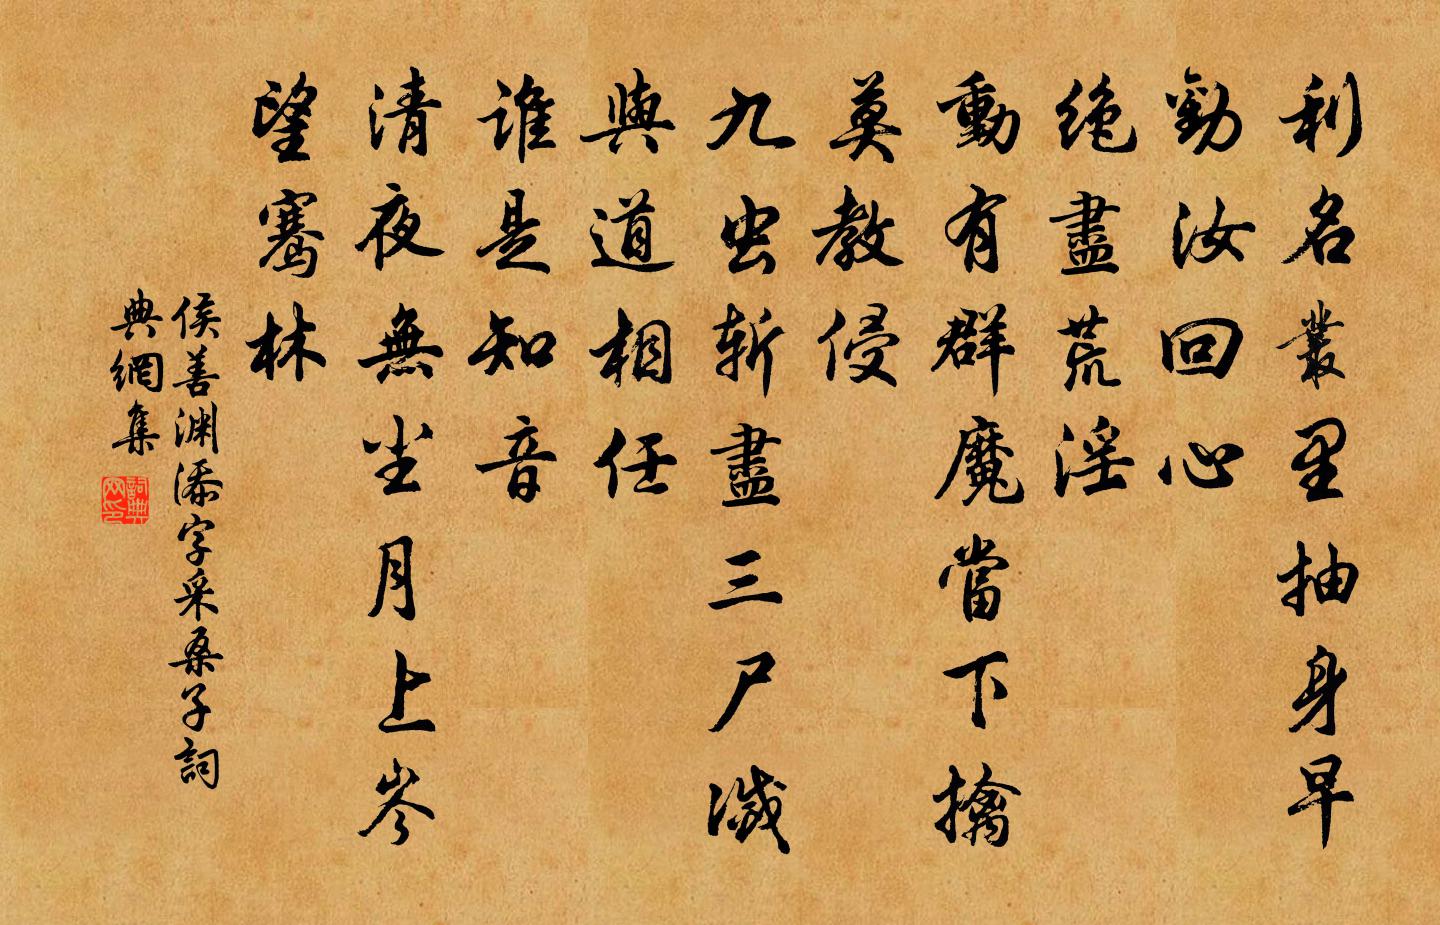 利名叢里抽身早
勸汝回心
絶盡荒淫
動有群魔當下擒
莫教侵
九虫斬盡三尸滅
與道相任
誰是知音
清夜無尘月上岑
望騫林
侯善渊添字采桑子詞
典網集
詞典网印